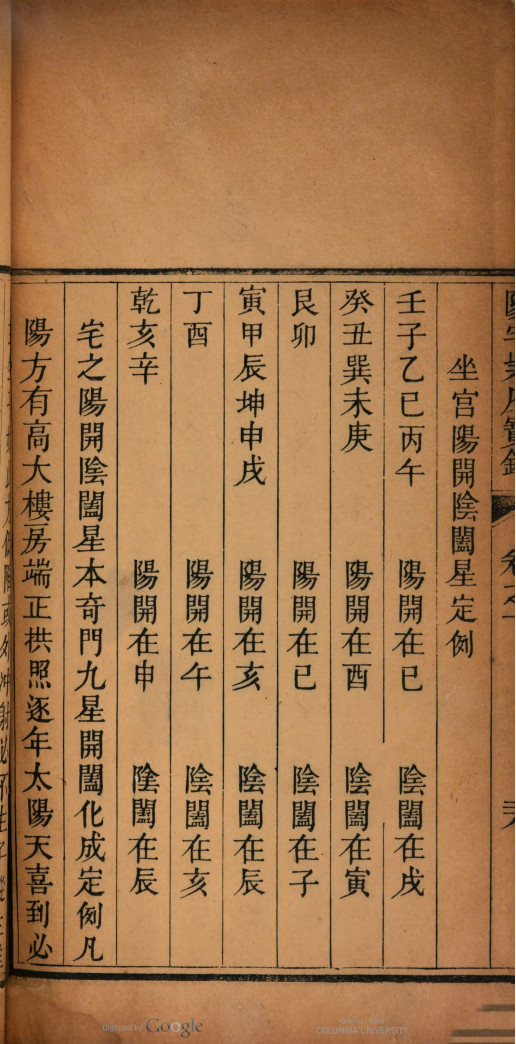 坐宮陽開陰闔星定例
壬子乙巳丙午 陽開在巳 陰闔在戌
癸丑巽未庚 陽開在酉 陰闔在寅
艮卯 陽開在巳 陰闔在子
寅甲辰坤申戌 陽開在亥 陰闔在辰
丁酉 陽開在午 陰闔在亥
乾亥辛 陽開在申 陰闔在辰
宅之陽開陰闔星本奇門九星開闔化成定例凡
陽方有高大樓房端正拱照逐年太陽天喜到必
Digitized by Google
COLUMBIA UNIVERSITY